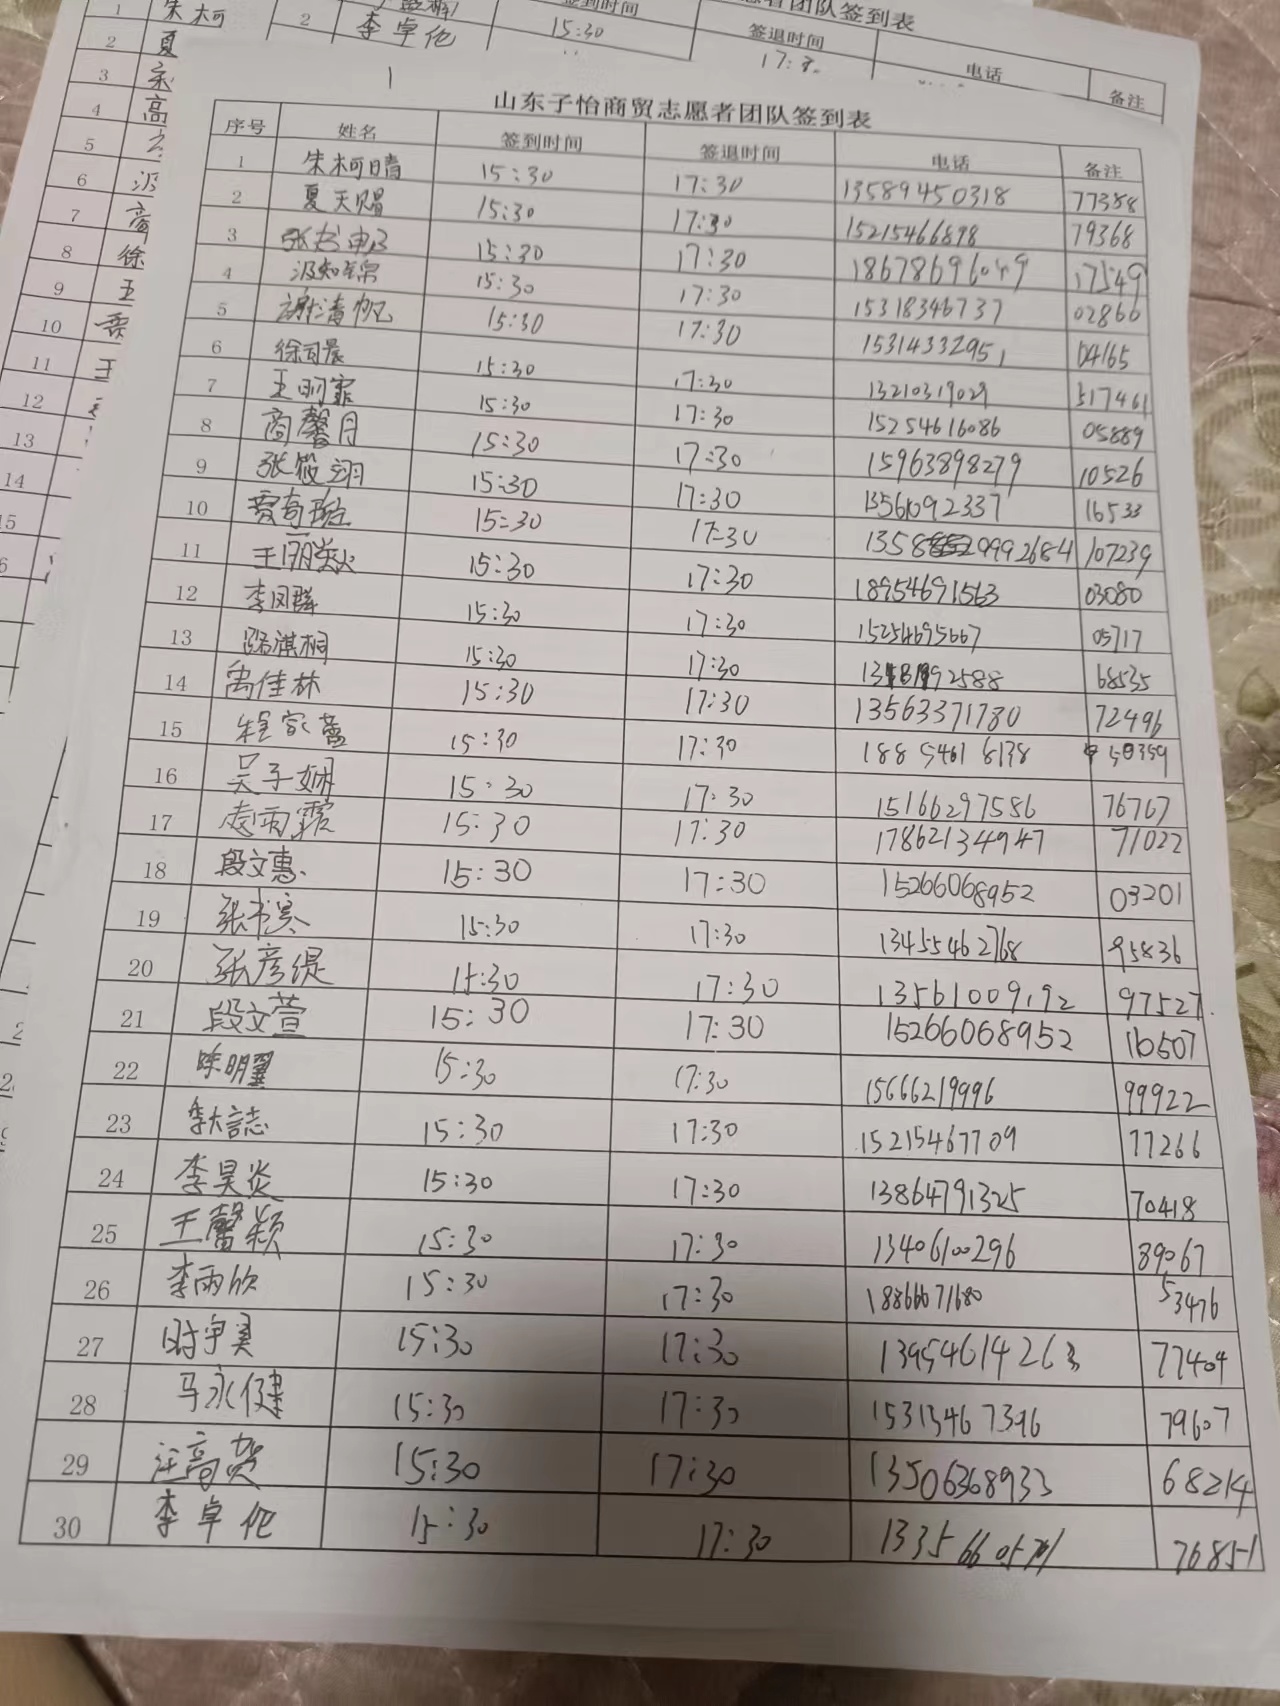 山东子怡商贸志愿者团队签到表
序号 姓名 签到时间 签退时间 电话 备注
1 朱柯晴 15:30 17:30 13589450318 77388
2 夏天赐 15:30 17:30 15215466898 79368
3 15:30 17:30 18678696049 17549
4 汲知锦 15:30 17:30 15318346737 02866
5 谢清帆 15:30 17:30 15314332951 04165
6 徐司晨 15:30 17:30 13210319029 517461
7 王明霏 15:30 17:30 15254616086 05889
8 商馨月 15:30 17:30 15963898279 10526
9 张筱翊 15:30 17:30 13561092337 16533
10 15:30 17:30 107239
11 15:30 17:30 18954691563 03080
12 李凤麟 15:30 17:30 15254695667 05717
13 陈淇桐 15:30 17:30 68535
14 禹佳林 15:30 17:30 13563371780 72496
15 程家蕾 15:30 17:30 18854618138 50359
16 吴子娴 15:30 17:30 15166297586 76767
17 雨霏 15:30 17:30 17862134947 71022
18 段文惠 15:30 17:30 15266068952 03201
19 张书宾 15:30 17:30 13455462768 95836
20 张彦缇 15:30 17:30 13561009192 97527
21 段文萱 15:30 17:30 15266068952 16507
22 陈明翼 15:30 17:30 15666219996 99922
23 15:30 17:30 15215467709 77266
24 李昊炎 15:30 17:30 13864791325 70418
25 王馨颖 15:30 17:30 13406100296 89067
26 李雨欣 15:30 17:30 18866671680 53476
27 时宇昊 15:30 17:30 13954614263 77404
28 马永健 15:30 17:30 15313467396 79607
29 汪高贺 15:30 17:30 13506368933 68214
30 李卓伦 15:30 17:30 76851